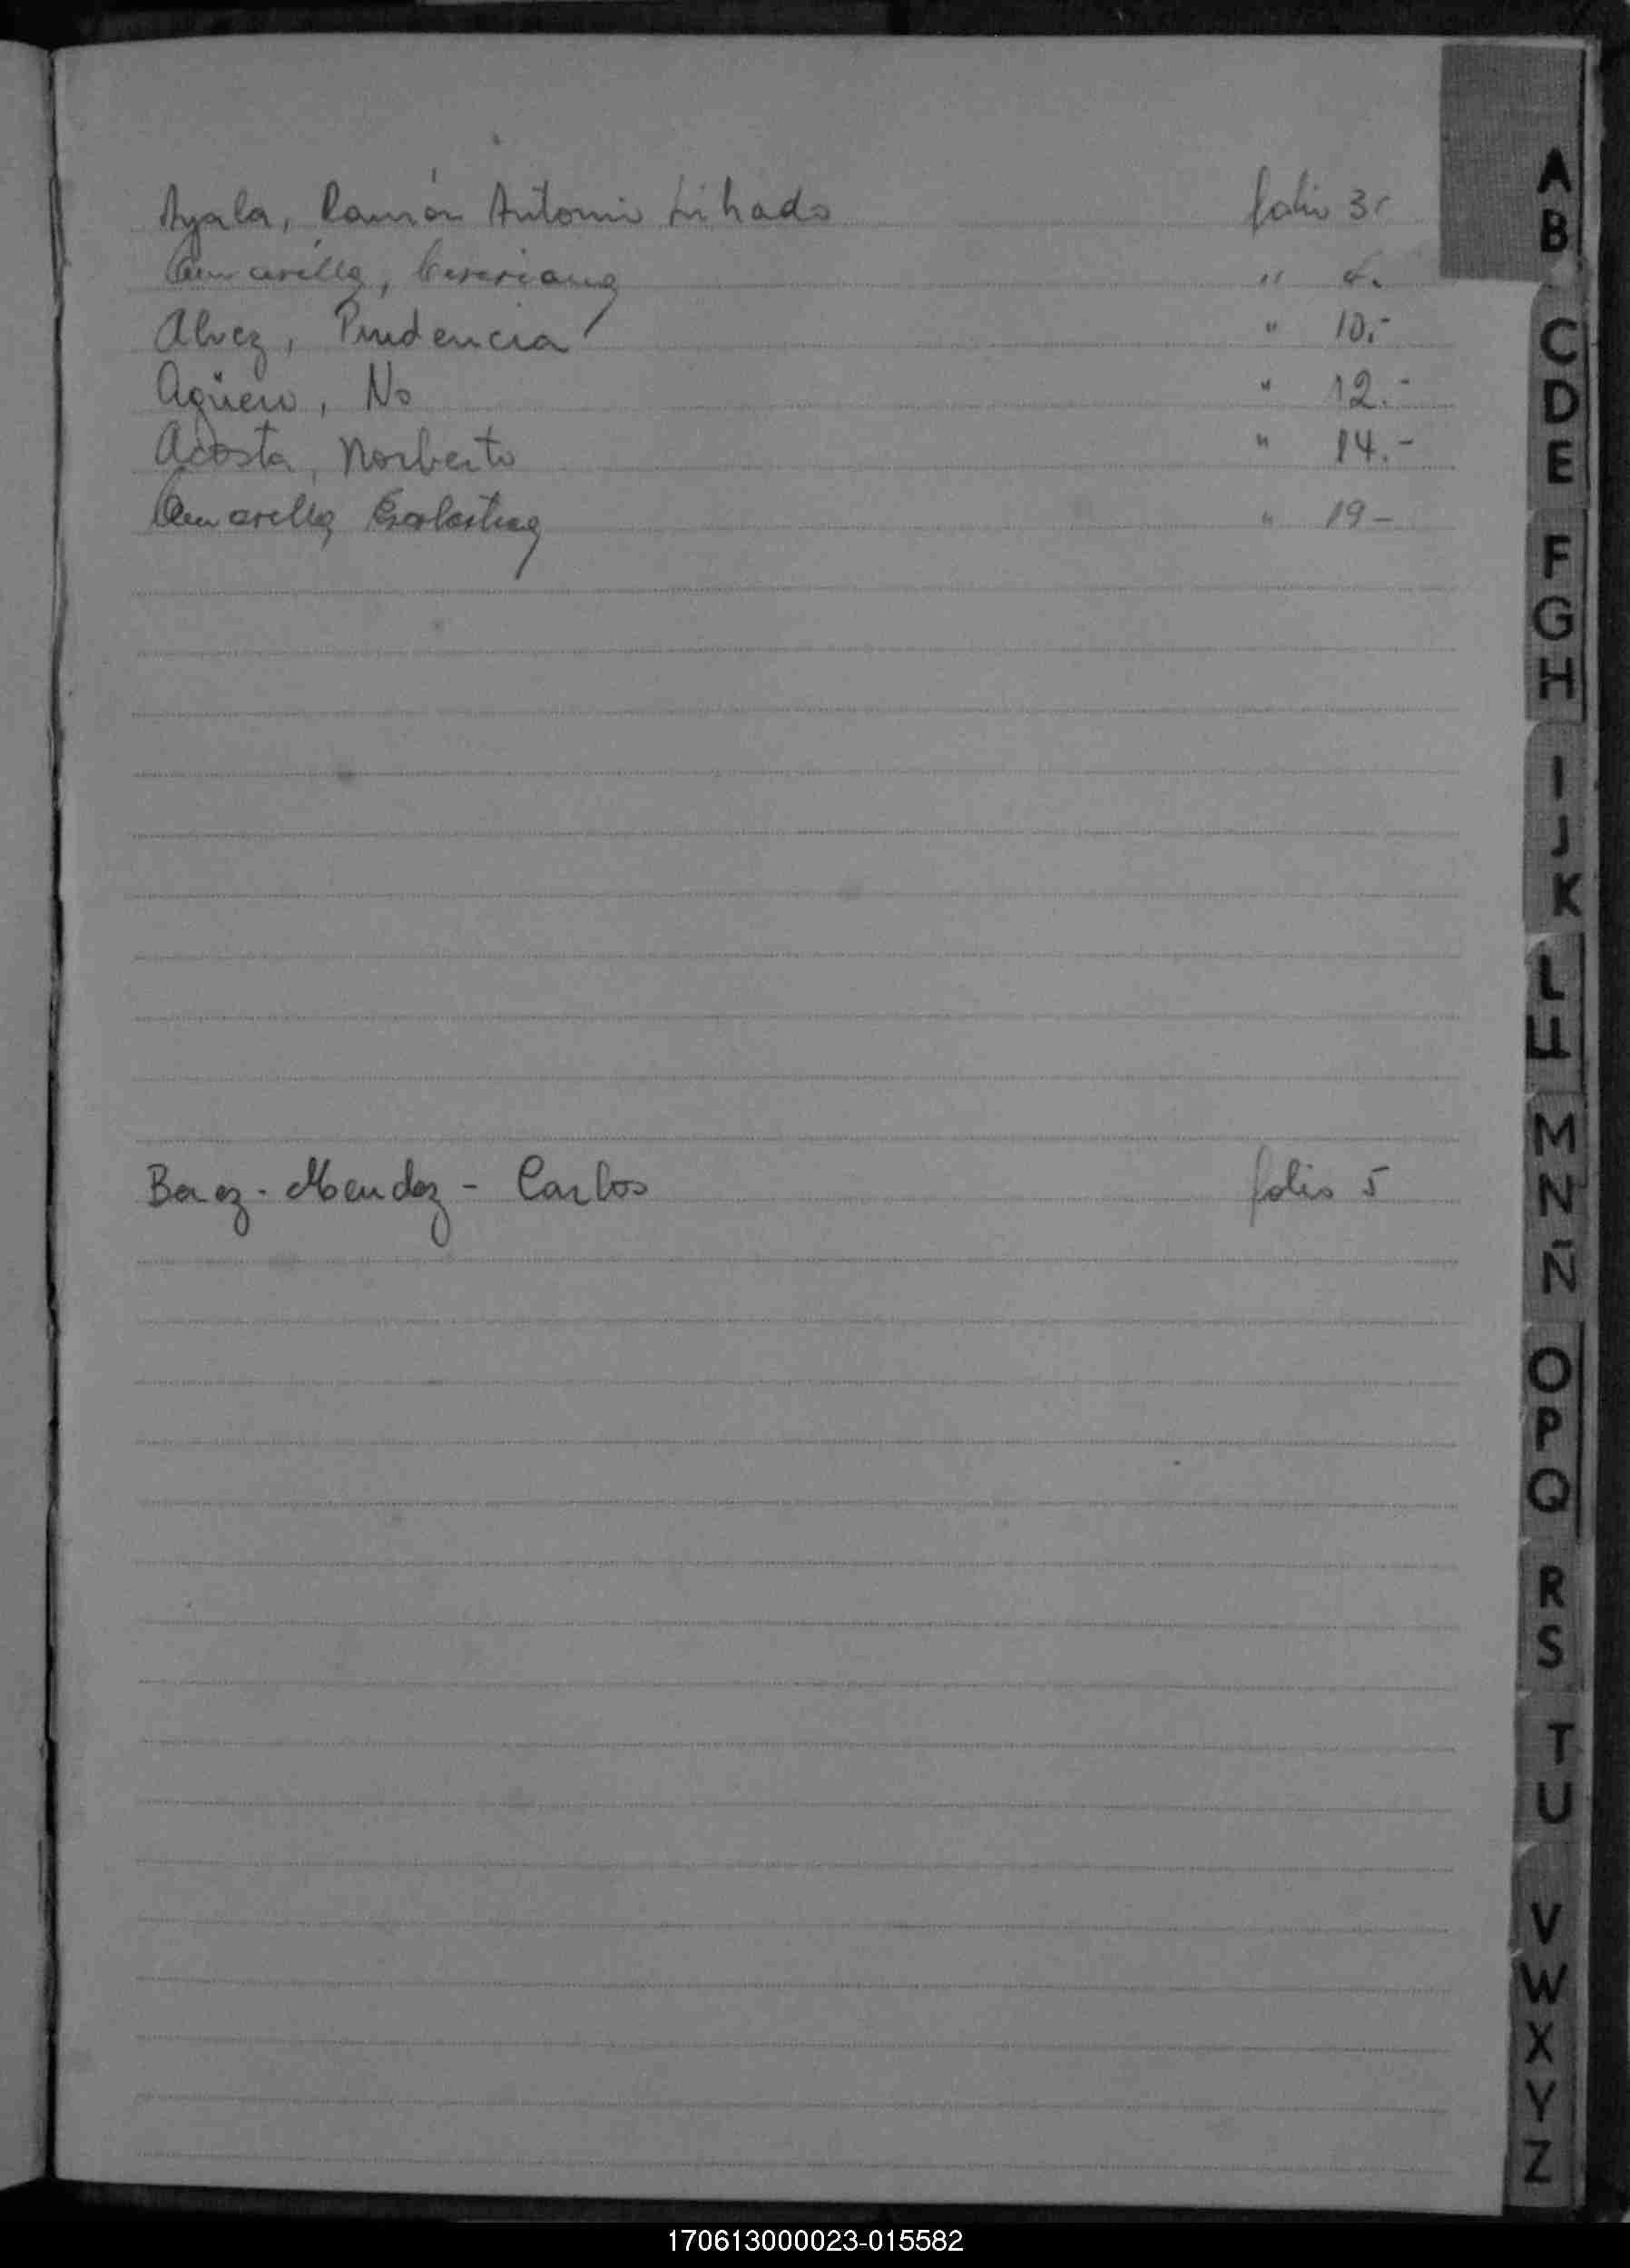 Ayala, Ramón Antonio folio 3
Amarilla, "
Alvez, Prudencia " 10.-
Agüero, No " 12.-
Acosta, Norberto " 14.-
Amarilla Escolastica " 19-
Baez - Mendez - Carlos folio 5
A
B
C
D
E
F
G
H
I
J
K
L
LL
M
N
Ñ
O
P
Q
R
S
T
U
V
W
X
Y
Z
170613000023-015582